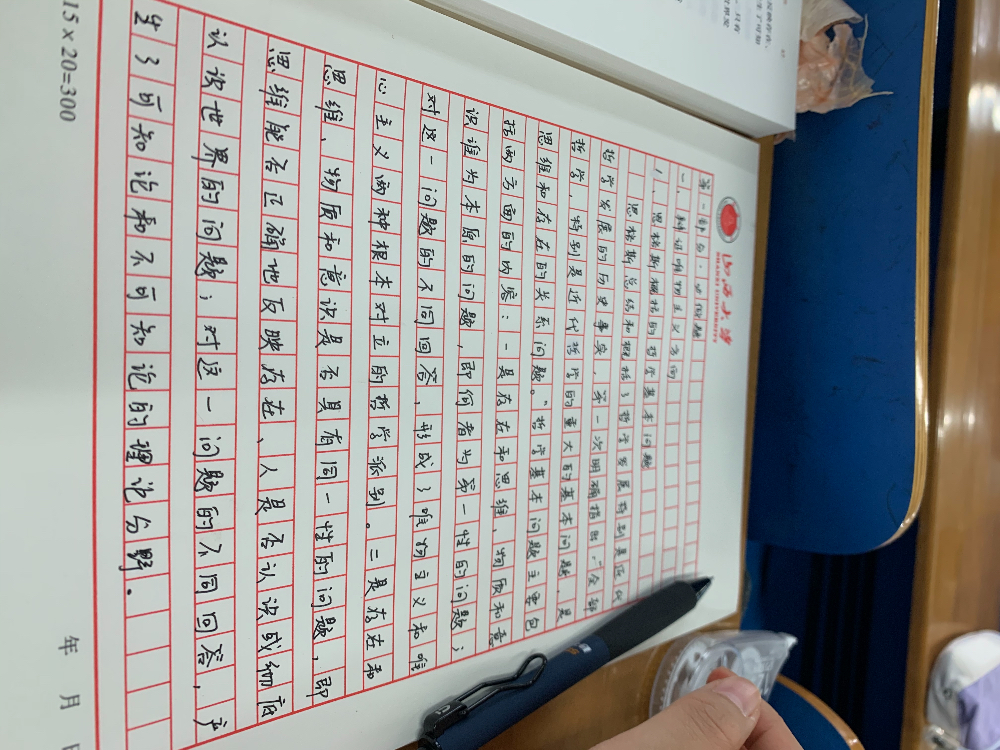 山西大学
SHANXI UNIVERSITY
第一部分：史限题
一、辩证唯物主义方向
1、恩格斯概括的哲学基本问题
恩格斯总结和概括了哲学发展特别是近代
哲学发展的历史事实，第一次明确指出："全部
哲学，特别是近代哲学的重大的基本问题，是
思维和存在的关系问题。"哲学基本问题主要包
括两方面的内容：一是存在和思维、物质和意
识谁为本原的问题，即何者为第一性的问题；
对这一问题的不同回答，形成了唯物主义和唯
心主义两种根本对立的哲学派别。二是存在和
思维、物质和意识是否具有同一性的问题，即
思维能否正确地反映存在、人是否认识或彻底
认识世界的问题；对这一问题的不同回答，产
生了可知论和不可知论的理论分野。
15×20=300
年 月 日